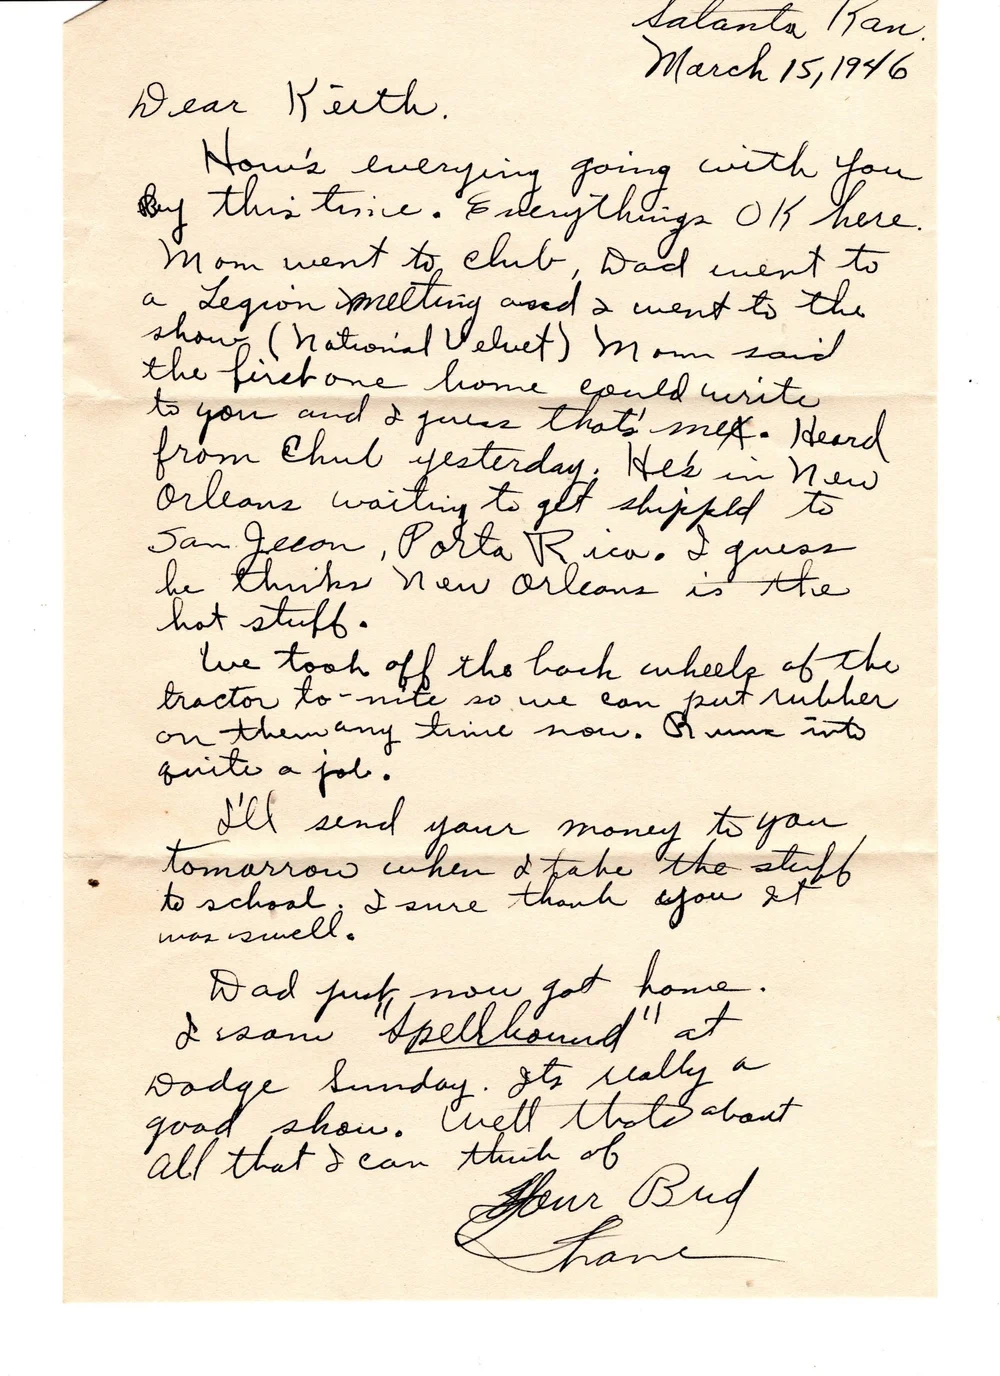 Satanta Kan.
March 15, 1946
Dear Keith.
How's everying going with you
By this time. Everythings OK here.
Mom went to club, Dad went to
a Legion meeting and I went to the
show (National Velvet) Mom said
the first one home could write
to you and I guess that's me. Heard
from Chub yesterday. He's in New
Orleans waiting to get shipped to
San Jecon, Porta Rico. I guess
he thinks New Orleans is the
hot stuff.
We took off the back wheels of the
tractor to-nite so we can put rubber
on them any time now. Runs into
quite a job.
I'll send your money to you
tomorrow when I take the stuff
to school. I sure thank you It
was swell.
Dad just now got home.
I saw "Spellbound" at
Dodge Sunday. Its really a
good show. Well thats about
all that I can think of
Your Bud